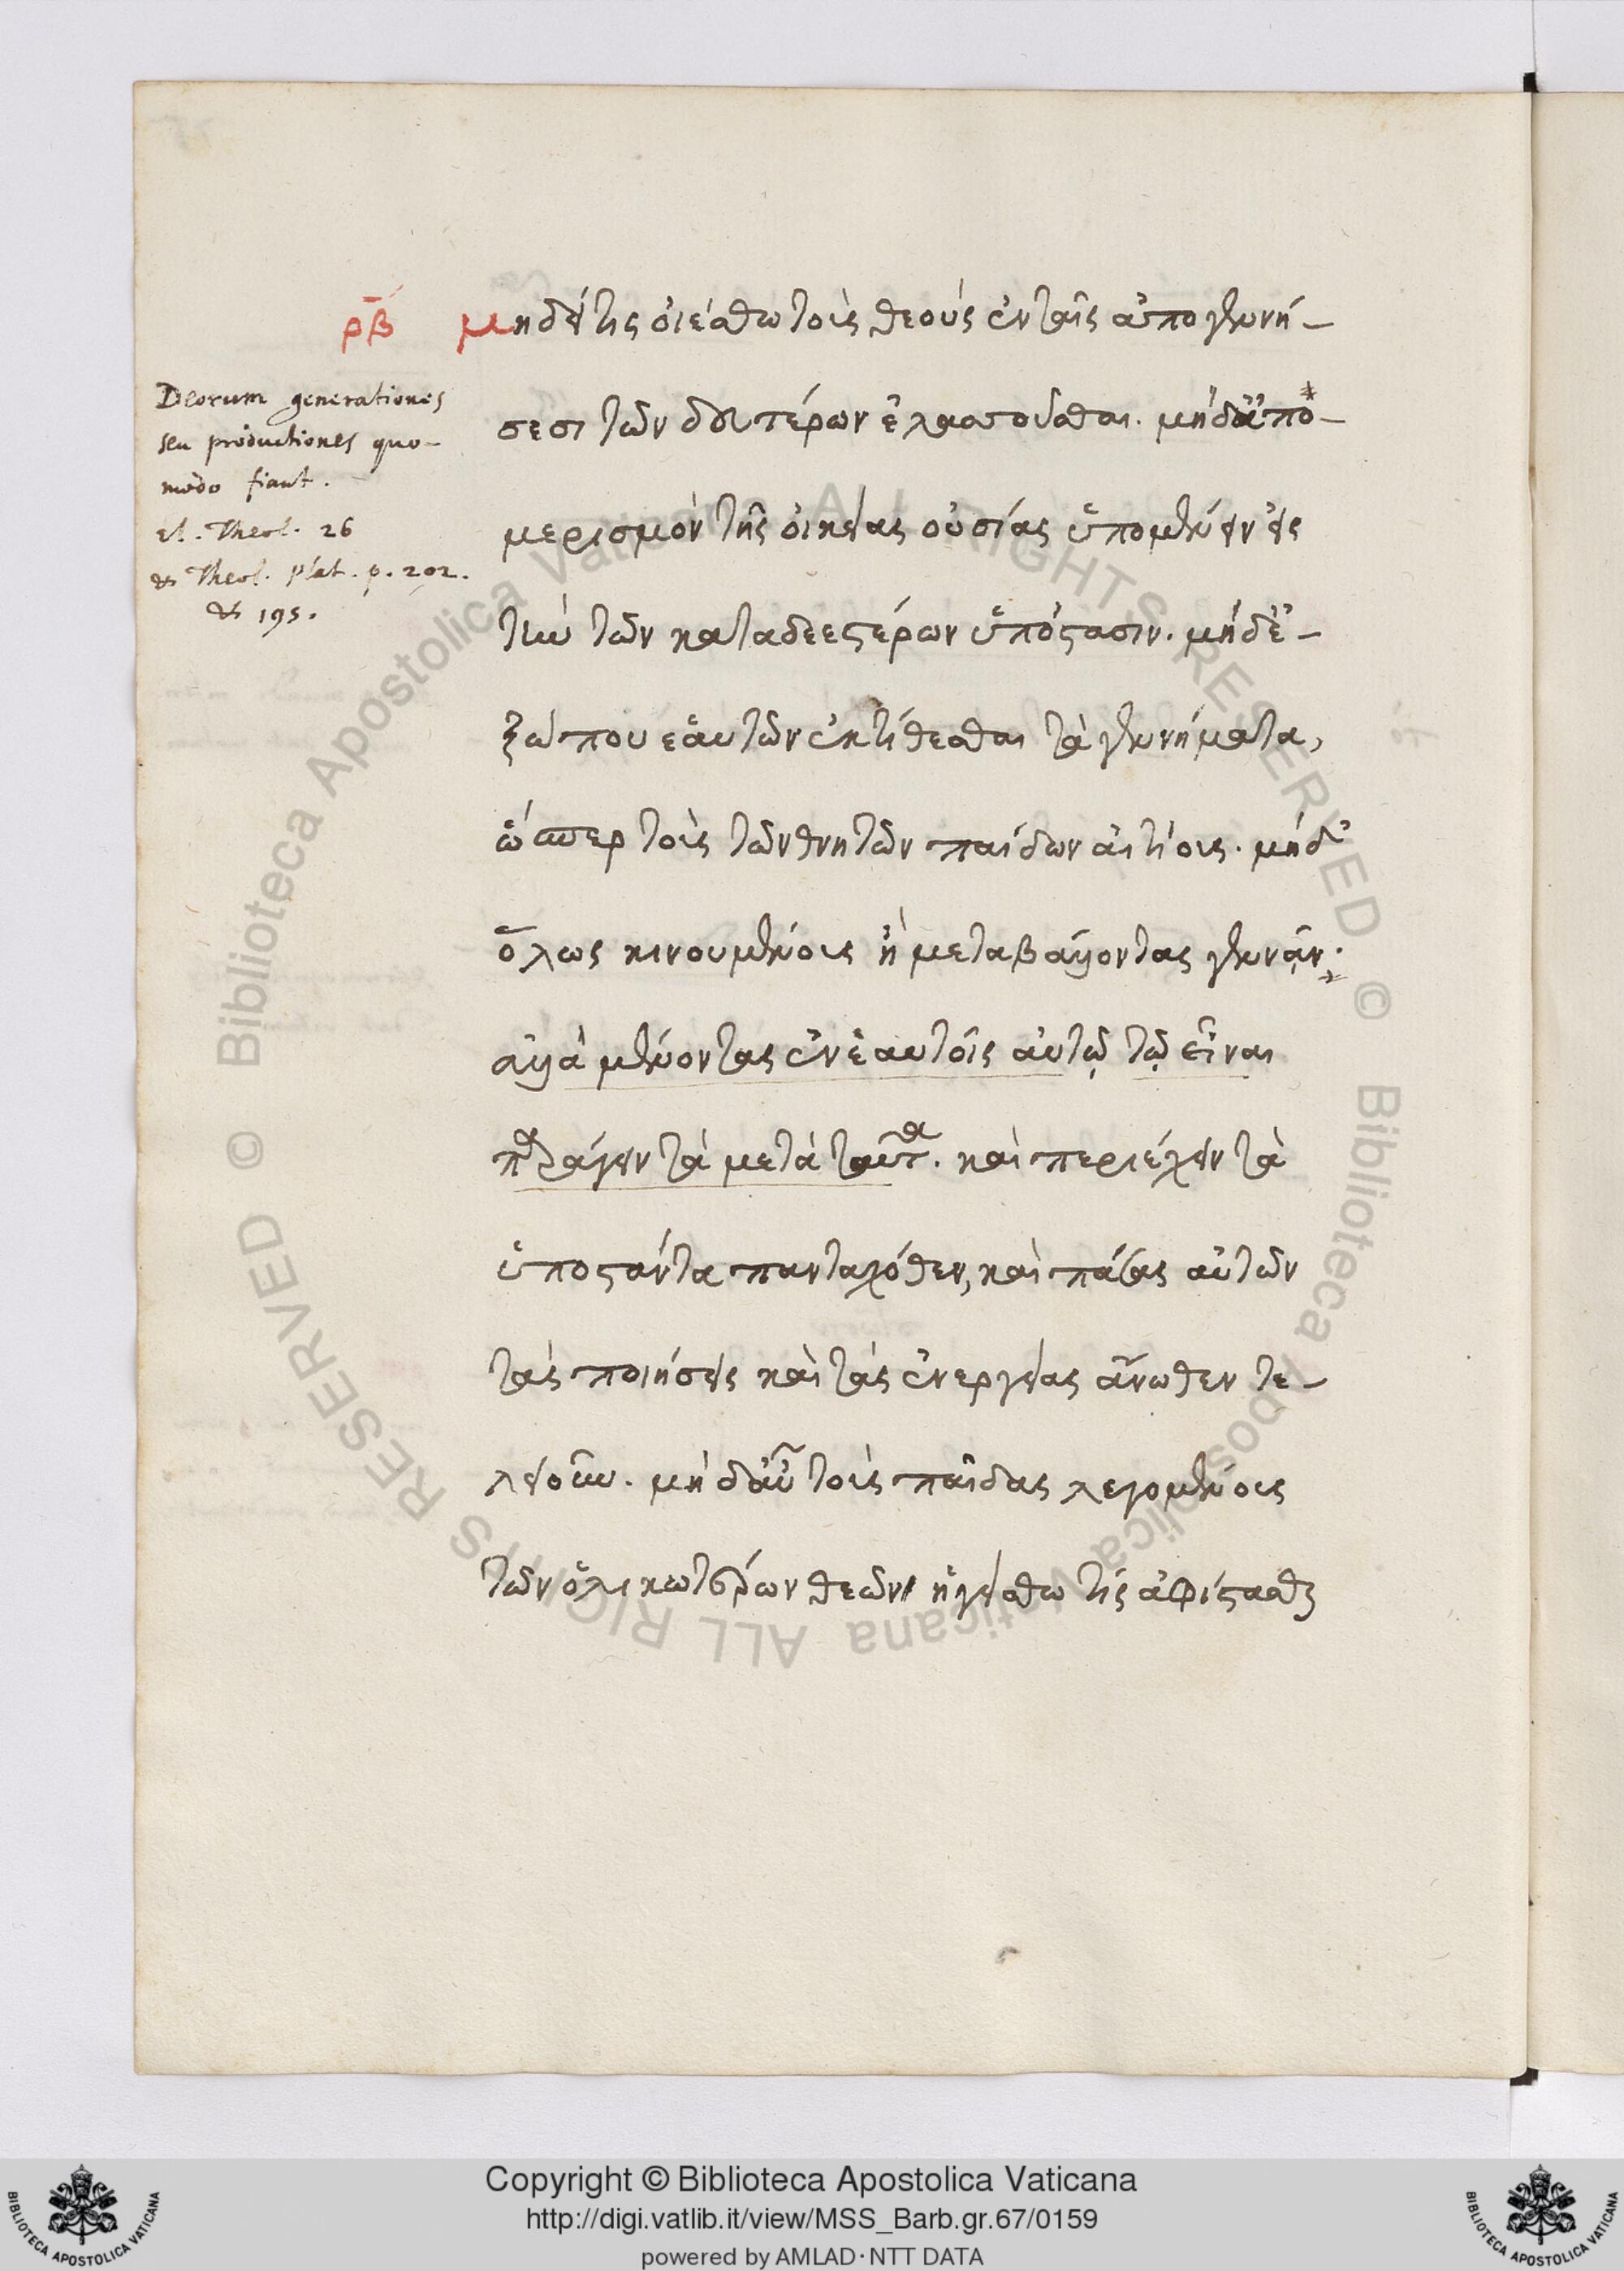 ρβ´ μηδείς τις οἰέσθω τοὺς θεοὺς ἐν ταῖς ἀπογεννή-
Deorum generationes
seu productiones quo-
modo fiant.
el. Theol. 26
& Theol. plat. p. 202.
& 195.
σεσι τῶν δευτέρων ἐλαττοῦσθαι. μὴδἄπο-
μερισμὸν τῆς οἰκείας οὐσίας ὑπομένειν εἰς
τὴν τῶν καταδεεστέρων ὑπόστασιν. μὴδἔ-
ξω που ἑαυτῶν ἐκτίθεσθαι τὰ γεννήματα,
ὥσπερ τοὺς τῶν θνητῶν παίδων αἰτίους. μὴδ'
ὅλως κινουμένους ἢ μεταβάλλοντας γεννᾶν·
ἀλλὰ μένοντας ἐν ἑαυτοῖς αὐτῷ τῷ εἶναι
παράγειν τὰ μετὰ ταῦτα. καὶ περιέχειν τὰ
ὑποστάντα πανταχόθεν, καὶ πάσας αὐτῶν
τὰς ποιήσεις καὶ τὰς ἐνεργείας ἄνωθεν τε-
λειοῦν. μὴδαὖ τοὺς παῖδας λεγομένους
τῶν ὁλικωτέρων θεῶν ἡγείσθω τίς ἀφίστασθαι
Copyright © Biblioteca Apostolica Vaticana
http://digi.vatlib.it/view/MSS_Barb.gr.67/0159
powered by AMLAD·NTT DATA
© Biblioteca Apostolica Vaticana ALL RIGHTS RESERVED © Biblioteca Apostolica Vaticana ALL RIGHTS RESERVED
BIBLIOTECA APOSTOLICA VATICANA
BIBLIOTECA APOSTOLICA VATICANA